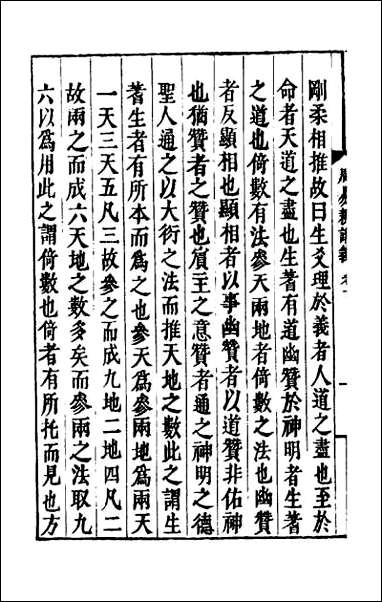 周易新講義
剛柔相推故曰生爻理於義者人道之盡也至於
命者天道之盡也生蓍有道幽贊於神明者生蓍
之道也倚數有法參天兩地者倚數之法也幽贊
者反顯相也顯相者以事幽贊者以道贊非佑神
也猶贊者之贊也賓主之意贊者通之神明之德
聖人通之以大衍之法而推天地之數此之謂生
蓍生者有所本而爲之也參天爲參兩地爲兩天
一天三天五凡三故參之而成九地二地四凡二
故兩之而成六天地之數多矣而參兩之法取九
六以爲用此之謂倚數也倚者有所托而見也方